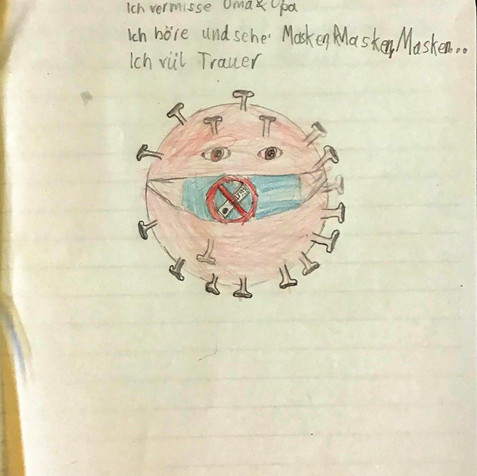 Ich vermisse Oma & Opa
Ich höre und sehe Masken, Masken, Masken...
Ich vüil Trauer